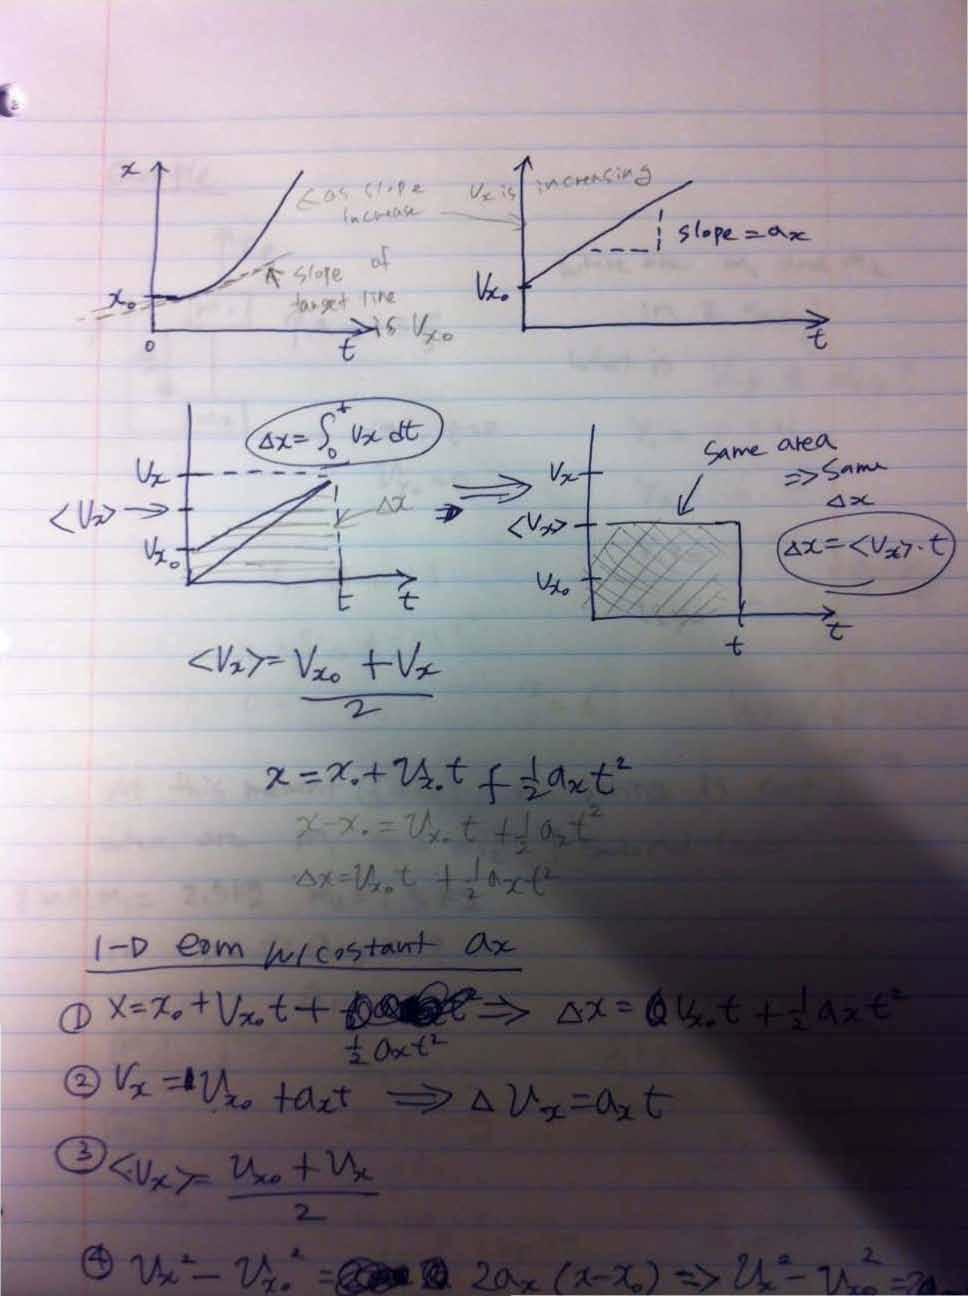 x
<as slope
increase
x₀
slope of
target line
is Vx₀
0
t
Vx is increasing
slope = ax
Vx₀
t
Δx = ∫₀ᵗ Vx dt
Vx
<Vx> →
Vx₀
Δx
t
t
⇒
Same area
⇒ Same
Δx
Vx
<Vx>
Δx = <Vx>·t
Vx₀
t
t
<Vx> = (Vx₀ + Vx)/2
x = x₀ + Vx₀t + ½axt²
x-x₀ = Vx₀t + ½axt²
Δx = Vx₀t + ½axt²
1-D eom w/costant ax
① X = x₀ + Vx₀t + ⇒ Δx = Vx₀t + ½axt²
½axt²
② Vx = Vx₀ + axt ⇒ ΔVx = axt
③ <Vx> = (Vx₀ + Vx)/2
④ Vx² - Vx₀² = 2ax(x-x₀) ⇒ Vx² - Vx₀² = 2a